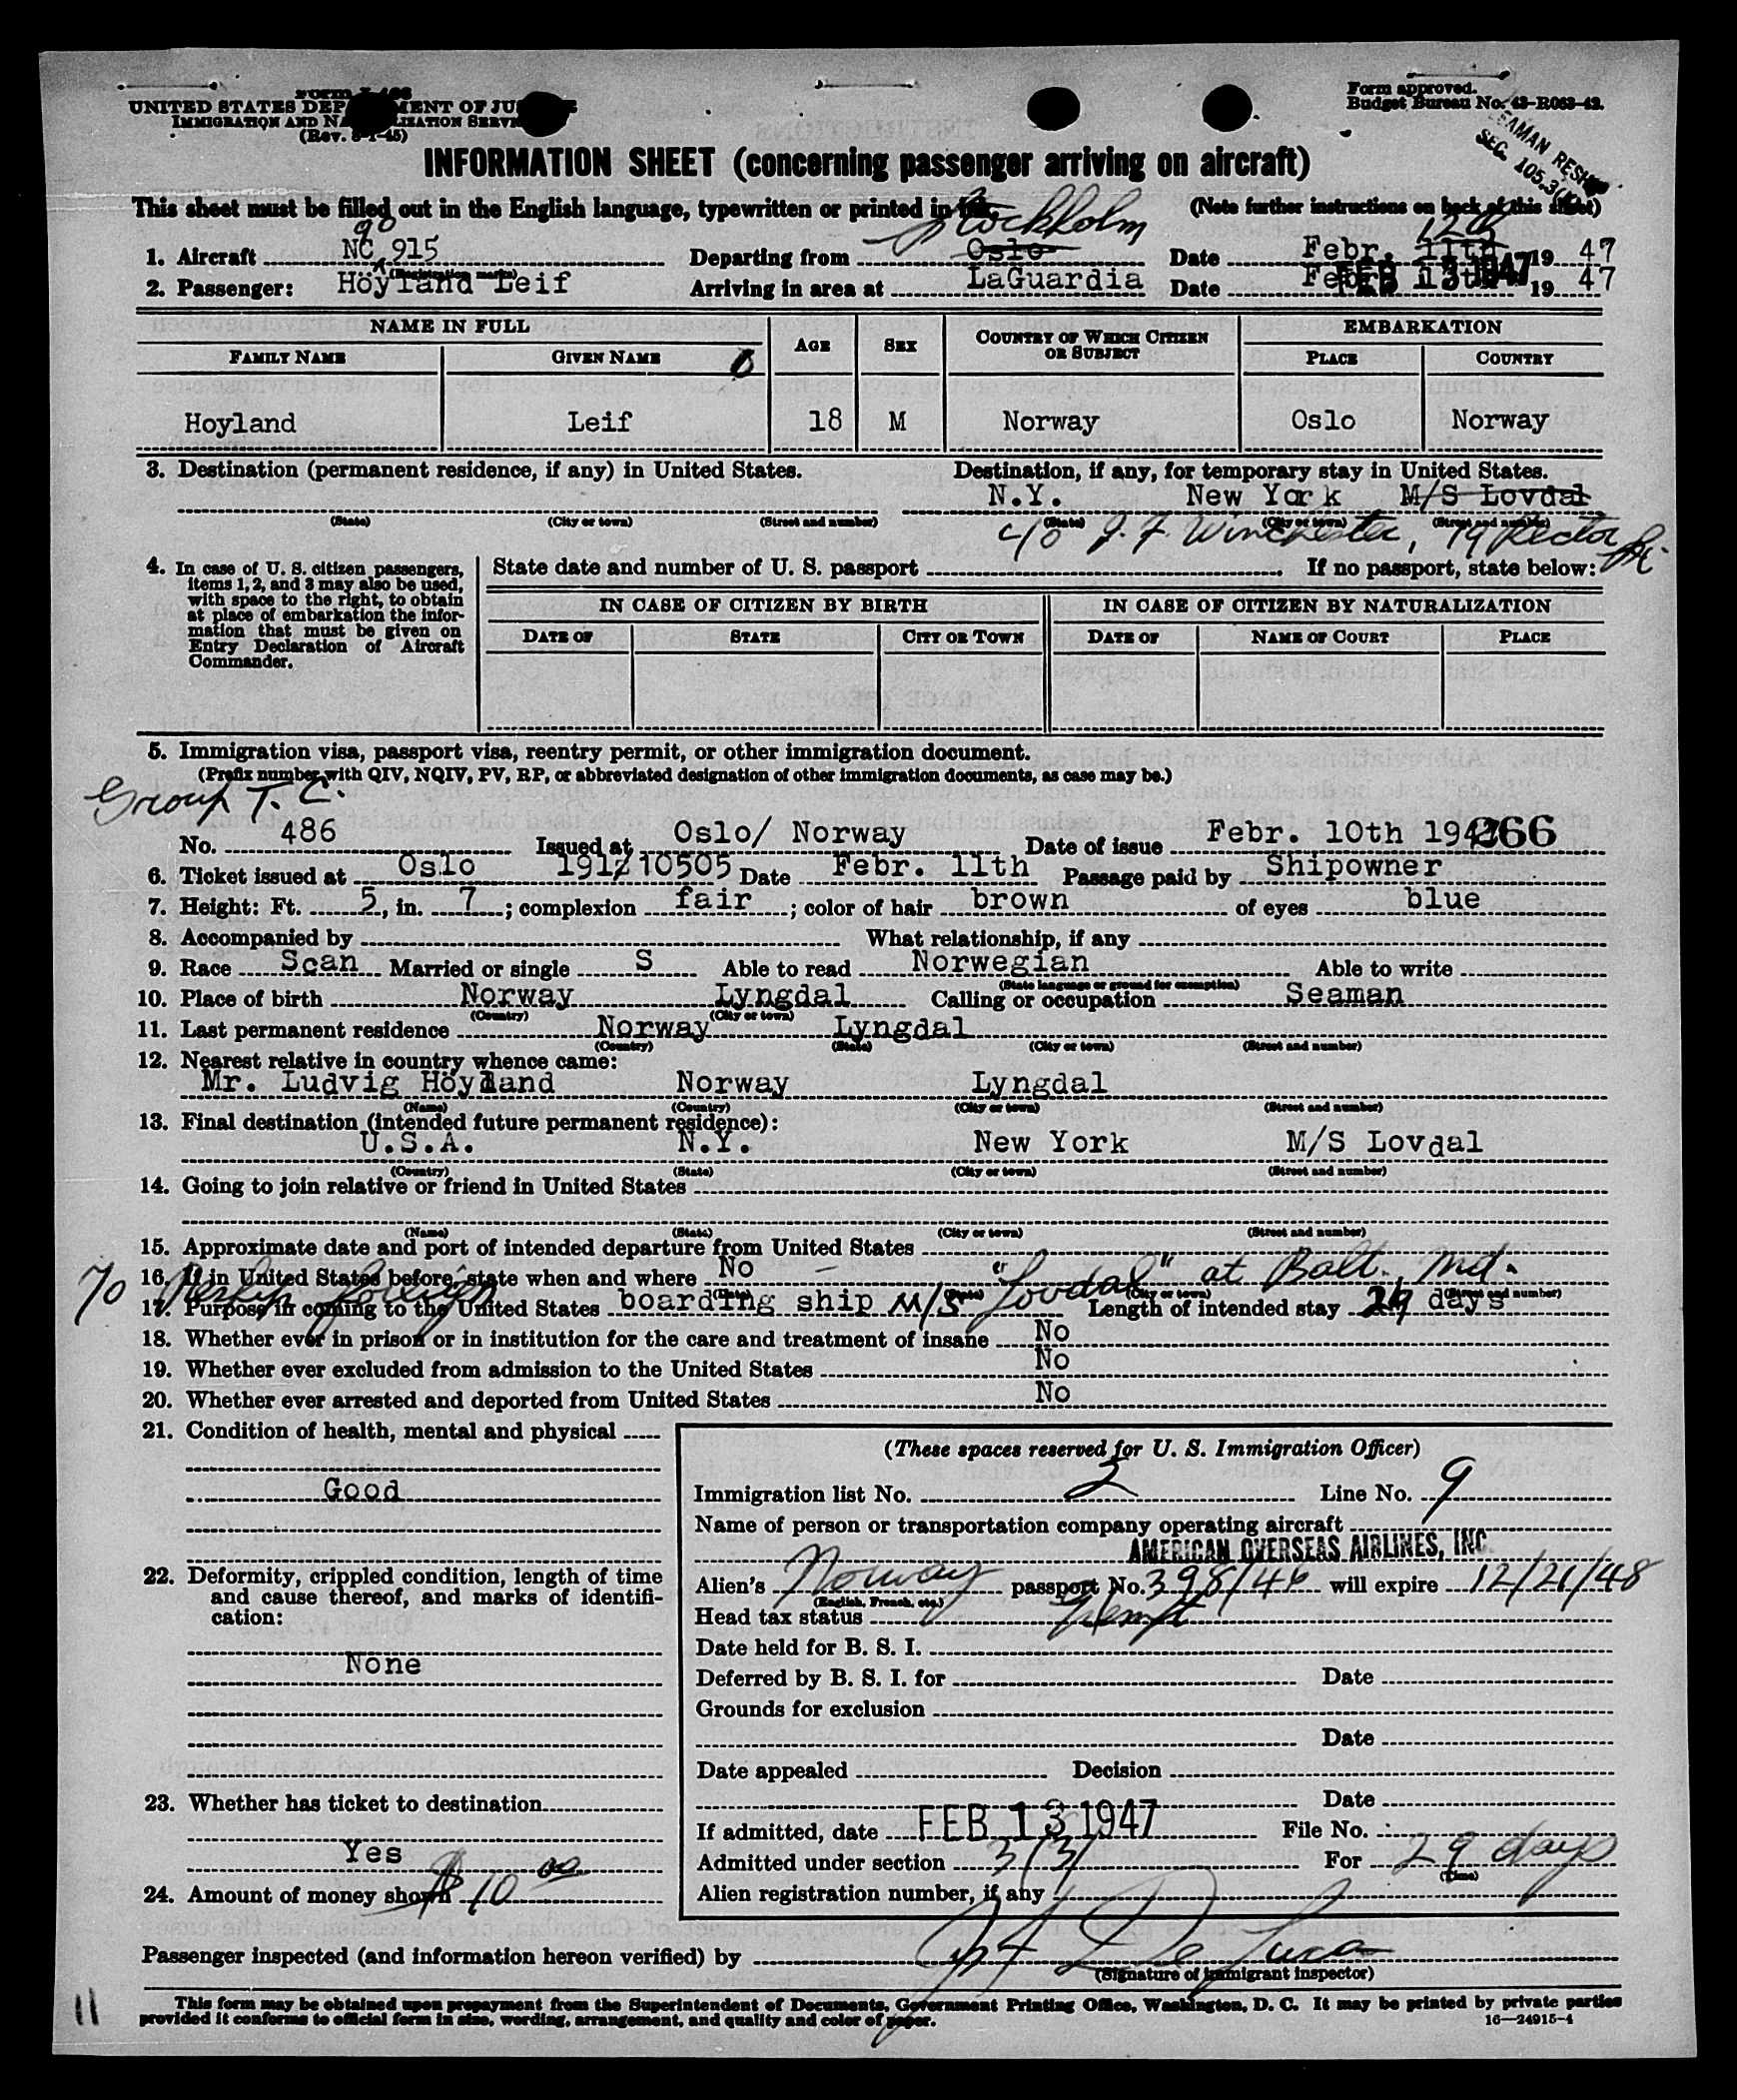 Form I-466
UNITED STATES DEPARTMENT OF JUSTICE
IMMIGRATION AND NATURALIZATION SERVICE
(Rev. 8-1-45)
Form approved.
Budget Bureau No. 43-R063-42.
SEAMAN RESHIP
SEC. 105.3
INFORMATION SHEET (concerning passenger arriving on aircraft)
This sheet must be filled out in the English language, typewritten or printed in ink. (Note further instructions on back of this sheet)
90 Stockholm 12th
1. Aircraft NC 915 Departing from Oslo Date Febr. 11th 19 47
(Registration marks)
2. Passenger: Höyland Leif Arriving in area at LaGuardia Date Febr 13th 19 47
FEB 13 1947
NAME IN FULL AGE SEX COUNTRY OF WHICH CITIZEN OR SUBJECT EMBARKATION
FAMILY NAME GIVEN NAME PLACE COUNTRY
Hoyland Leif 18 M Norway Oslo Norway
3. Destination (permanent residence, if any) in United States. Destination, if any, for temporary stay in United States.
N.Y. New York M/S Lovdal
(State) (City or town) (Street and number) (State) (City or town) (Street and number)
c/o J. F. Winchester, 19 Rector St.
4. In case of U. S. citizen passengers, items 1, 2, and 3 may also be used, with space to the right, to obtain at place of embarkation the information that must be given on Entry Declaration of Aircraft Commander.
State date and number of U. S. passport If no passport, state below:
IN CASE OF CITIZEN BY BIRTH IN CASE OF CITIZEN BY NATURALIZATION
DATE OF STATE CITY OR TOWN DATE OF NAME OF COURT PLACE
5. Immigration visa, passport visa, reentry permit, or other immigration document.
(Prefix number with QIV, NQIV, PV, RP, or abbreviated designation of other immigration documents, as case may be.)
Group T. C.
No. 486 Issued at Oslo/ Norway Date of issue Febr. 10th 1947 266
6. Ticket issued at Oslo 191/10505 Date Febr. 11th Passage paid by Shipowner
7. Height: Ft. 5, in. 7; complexion fair; color of hair brown of eyes blue
8. Accompanied by What relationship, if any
9. Race Scan Married or single S Able to read Norwegian Able to write
(State language or ground for exemption)
10. Place of birth Norway Lyngdal Calling or occupation Seaman
(Country) (City or town)
11. Last permanent residence Norway Lyngdal
(Country) (State) (City or town) (Street and number)
12. Nearest relative in country whence came:
Mr. Ludvig Höyland Norway Lyngdal
(Name) (Country) (City or town) (Street and number)
13. Final destination (intended future permanent residence):
U.S.A. N.Y. New York M/S Lovdal
(Country) (State) (City or town) (Street and number)
14. Going to join relative or friend in United States
(Name) (State) (City or town) (Street and number)
15. Approximate date and port of intended departure from United States
16. If in United States before, state when and where No
(Date) (State) (City or town) (Street and number)
To Reship foreign
17. Purpose in coming to the United States boarding ship M/S "Lovdal" at Balt., Md. Length of intended stay 29 days
18. Whether ever in prison or in institution for the care and treatment of insane No
19. Whether ever excluded from admission to the United States No
20. Whether ever arrested and deported from United States No
21. Condition of health, mental and physical
Good
22. Deformity, crippled condition, length of time and cause thereof, and marks of identification:
None
23. Whether has ticket to destination
Yes
24. Amount of money shown $10 00
(These spaces reserved for U. S. Immigration Officer)
Immigration list No. 2 Line No. 9
Name of person or transportation company operating aircraft
AMERICAN OVERSEAS AIRLINES, INC
Alien's Norway passport No. 398/46 will expire 12/21/48
(English, French, etc.)
Head tax status Exempt
Date held for B. S. I.
Deferred by B. S. I. for Date
Grounds for exclusion
Date
Date appealed Decision
Date
If admitted, date FEB 13 1947 File No.
Admitted under section 3/3/ For 29 days
(Time)
Alien registration number, if any
Passenger inspected (and information hereon verified) by De Luca
(Signature of immigrant inspector)
11
This form may be obtained upon prepayment from the Superintendent of Documents, Government Printing Office, Washington, D. C. It may be printed by private parties
provided it conforms to official form in size, wording, arrangement, and quality and color of paper.
16—24915-4